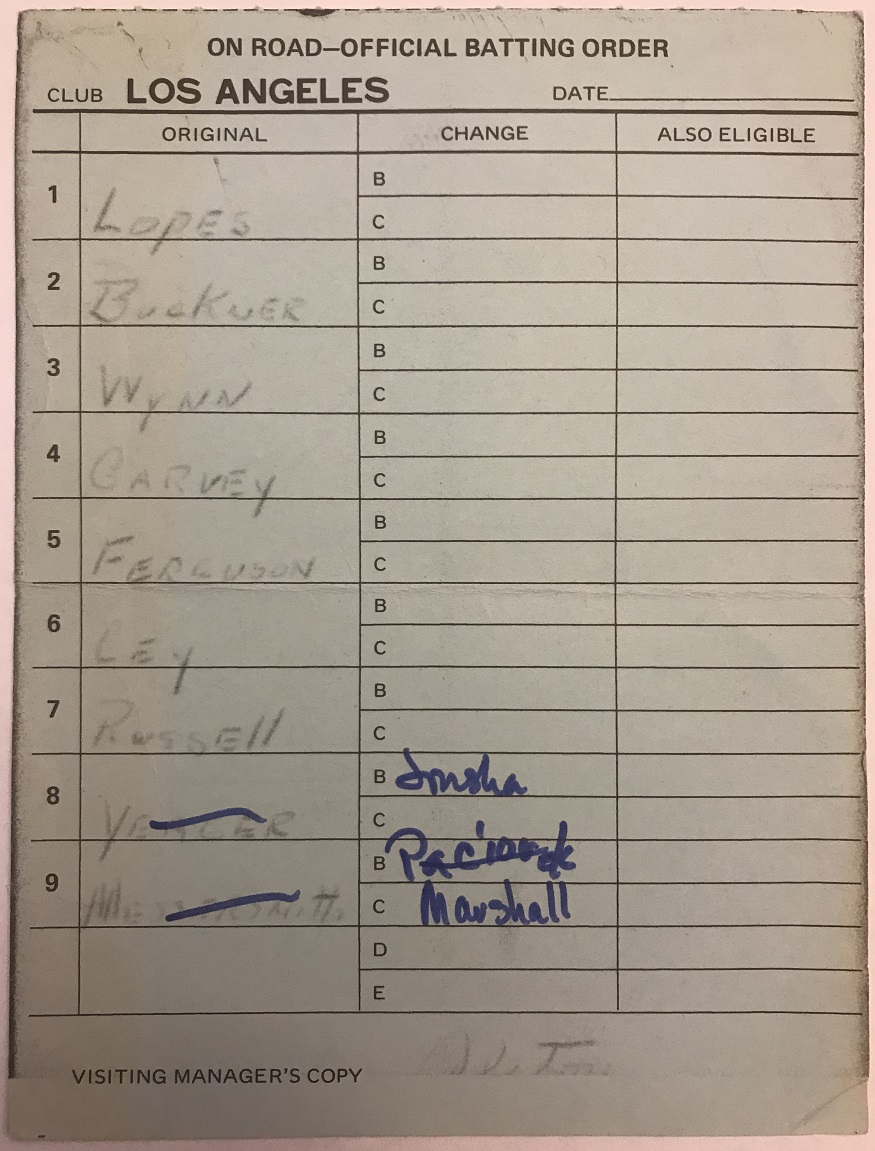 ON ROAD—OFFICIAL BATTING ORDER
CLUB LOS ANGELES DATE
ORIGINAL CHANGE ALSO ELIGIBLE
1 Lopes B
C
2 Buckner B
C
3 Wynn B
C
4 Garvey B
C
5 Ferguson B
C
6 Cey B
C
7 Russell B
C
8 Yeager B
C
9 Messersmith B Paciorek
C Marshall
D
E
VISITING MANAGER'S COPY